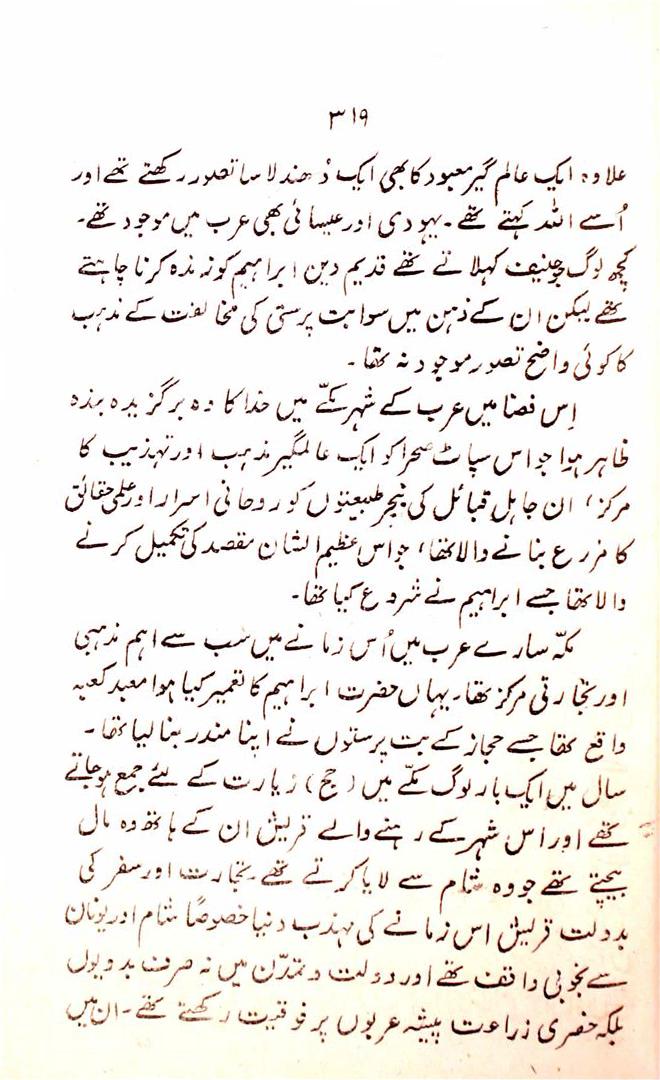 ۳۱۹
علاوہ ایک عالم گیر معبود کا بھی ایک دُھندلا سا تصور رکھتے تھے اور
اُسے اللہ کہتے تھے۔ یہودی اور عیسائی بھی عرب میں موجود تھے۔
کچھ لوگ جو حنیف کہلاتے تھے قدیم دین ابراہیم کو زندہ کرنا چاہتے
تھے لیکن ان کے ذہن میں سوا بت پرستی کی مخالفت کے مذہب
کا کوئی واضح تصور موجود نہ تھا۔
اِس فضا میں عرب کے شہر مکّے میں خدا کا وہ برگزیدہ بندہ
ظاہر ہوا جو اس سپاٹ صحرا کو ایک عالمگیر مذہب اور تہذیب کا
مرکز، ان جاہل قبائل کی بنجر طبیعتوں کو روحانی اسرار اور علمی حقائق
کا مزرع بنانے والا تھا، جو اس عظیم الشان مقصد کی تکمیل کرنے
والا تھا جسے ابراہیم نے شروع کیا تھا۔
مکّہ سارے عرب میں اُس زمانے میں سب سے اہم مذہبی
اور تجارتی مرکز تھا۔ یہاں حضرت ابراہیم کا تعمیر کیا ہوا معبد کعبہ
واقع تھا جسے حجاز کے بت پرستوں نے اپنا مندر بنا لیا تھا۔
سال میں ایک بار لوگ مکّے میں (حج) زیارت کے لئے جمع ہو جاتے
تھے اور اس شہر کے رہنے والے قریش ان کے ہاتھ وہ مال
بیچتے تھے جو وہ شام سے لایا کرتے تھے۔ تجارت اور سفر کی
بدولت قریش اس زمانے کی مہذب دنیا خصوصاً شام اور یونان
سے بخوبی واقف تھے اور دولت و تمدّن میں نہ صرف بدویوں
بلکہ حضری زراعت پیشہ عربوں پر فوقیت رکھتے تھے۔ ان میں